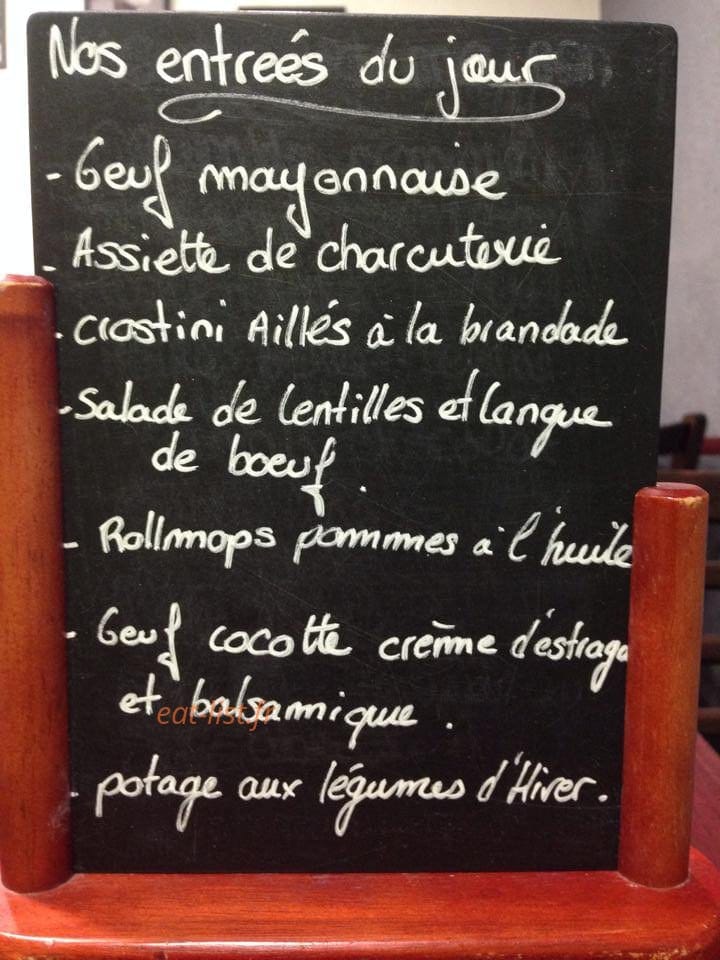 Nos entreés du jour
- Oeuf mayonnaise
- Assiette de charcuterie
- Crostini Aillés à la brandade
- Salade de lentilles et langue
de boeuf.
- Rollmops pommes à l'huile
- Oeuf cocotte crème d'estrago
et balsamique.
eat-list.fr
- potage aux légumes d'Hiver.